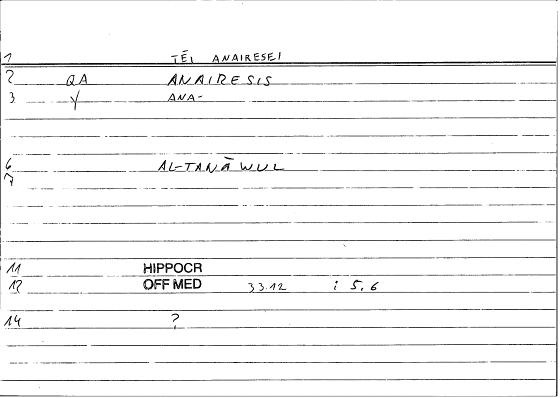 1 TĒI ANAIRESEI
2 QA ANAIRESIS
3 Y ANA-
6 AL-TANĀWUL
7
11 HIPPOCR
12 OFF MED 33.12 i 5,6
14 ?